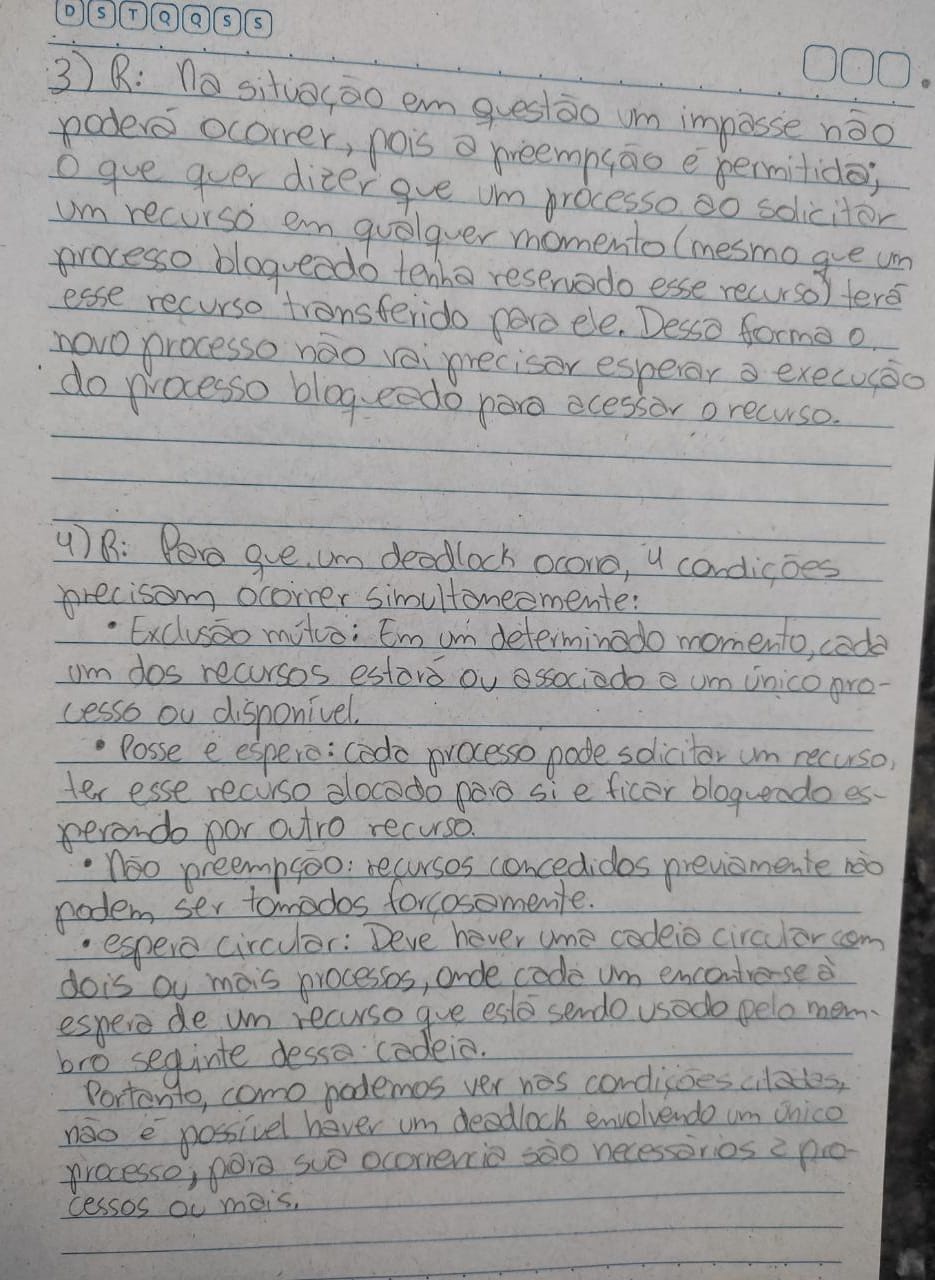 D S T Q Q S S
3) R: Na situação em questão um impasse não
poderá ocorrer, pois a preempção é permitida;
O que quer dizer que um processo ao solicitar
um recurso em qualquer momento (mesmo que um
processo bloqueado tenha reservado esse recurso) terá
esse recurso transferido para ele. Dessa forma o
novo processo não vai precisar esperar a execução
do processo bloqueado para acessar o recurso.
4) R: Para que um deadlock ocorra, 4 condições
precisam ocorrer simultaneamente:
• Exclusão mútua: Em um determinado momento, cada
um dos recursos estará ou associado a um único pro-
cesso ou disponível.
• Posse e espera: cada processo pode solicitar um recurso,
ter esse recurso alocado para si e ficar bloqueado es-
perando por outro recurso.
• Não preempção: recursos concedidos previamente não
podem ser tomados forçosamente.
• espera circular: Deve haver uma cadeia circular com
dois ou mais processos, onde cada um encontra-se à
espera de um recurso que está sendo usado pelo mem-
bro seguinte dessa cadeia.
Portanto, como podemos ver nas condições citadas,
não é possível haver um deadlock envolvendo um único
processo, para sua ocorrencia são necessários 2 pro-
cessos ou mais.